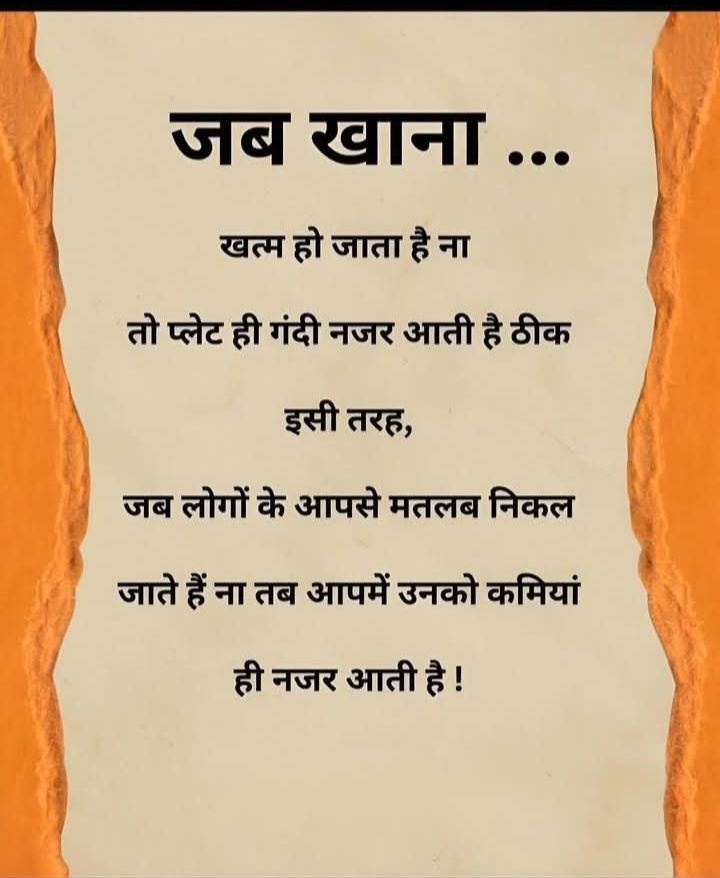 जब खाना ...
खत्म हो जाता है ना
तो प्लेट ही गंदी नजर आती है ठीक
इसी तरह,
जब लोगों के आपसे मतलब निकल
जाते हैं ना तब आपमें उनको कमियां
ही नजर आती है !